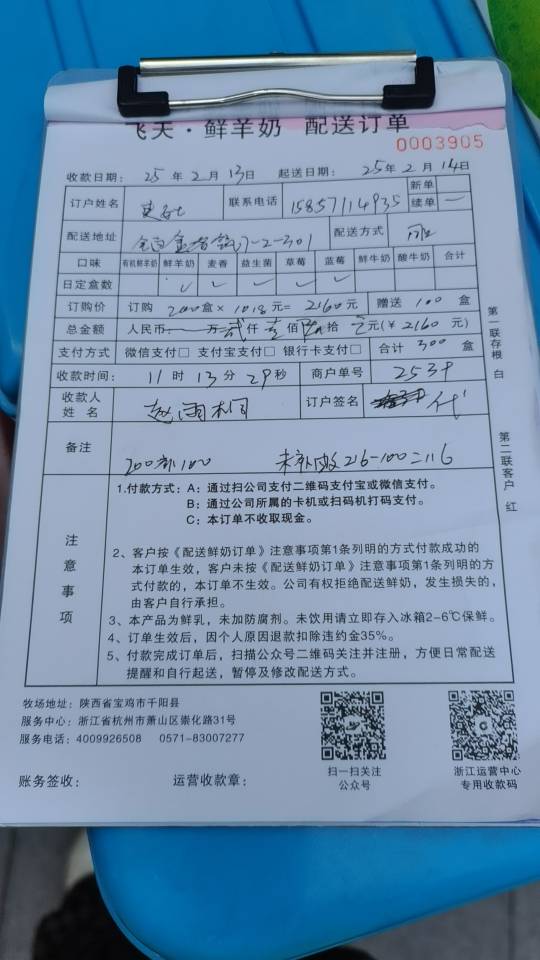 飞天·鲜羊奶 配送订单
0003905
收款日期： 25 年 2 月 13 日 起送日期： 25 年 2 月 14 日
订户姓名 联系电话 15857114935 新单 续单
配送地址 7-2-301 配送方式
口味 有机鲜羊奶 鲜羊奶 麦香 益生菌 草莓 蓝莓 鲜牛奶 酸牛奶 合计
日定盒数 ✓ ✓ ✓ ✓ ✓
订购价 订购 200 盒 × 10.8 元= 2160 元 赠送 100 盒
总金额 人民币 万 贰 仟 壹 佰 陆 拾 元(￥ 2160 元)
支付方式 微信支付□ 支付宝支付□ 银行卡支付□ 合计 300 盒
收款时间： 11 时 13 分 29 秒 商户单号
收款人姓名 赵雨桐 订户签名 代
备注 200 100 216-100=116
注意事项
1.付款方式：A：通过扫公司支付二维码支付宝或微信支付。
B：通过公司所属的卡机或扫码机打码支付。
C：本订单不收取现金。
2、客户按《配送鲜奶订单》注意事项第1条列明的方式付款成功的
本订单生效，客户未按《配送鲜奶订单》注意事项第1条列明的方
式付款的，本订单不生效。公司有权拒绝配送鲜奶，发生损失的，
由客户自行承担。
3、本产品为鲜乳，未加防腐剂。未饮用请立即存入冰箱2-6℃保鲜。
4、订单生效后，因个人原因退款扣除违约金35%。
5、付款完成订单后，扫描公众号二维码关注并注册，方便日常配送
提醒和自行起送，暂停及修改配送方式。
第一联存根 白
第二联客户 红
牧场地址：陕西省宝鸡市千阳县
服务中心：浙江省杭州市萧山区崇化路31号
服务电话：4009926508 0571-83007277
账务签收： 运营收款章：
扫一扫关注
公众号
浙江运营中心
专用收款码